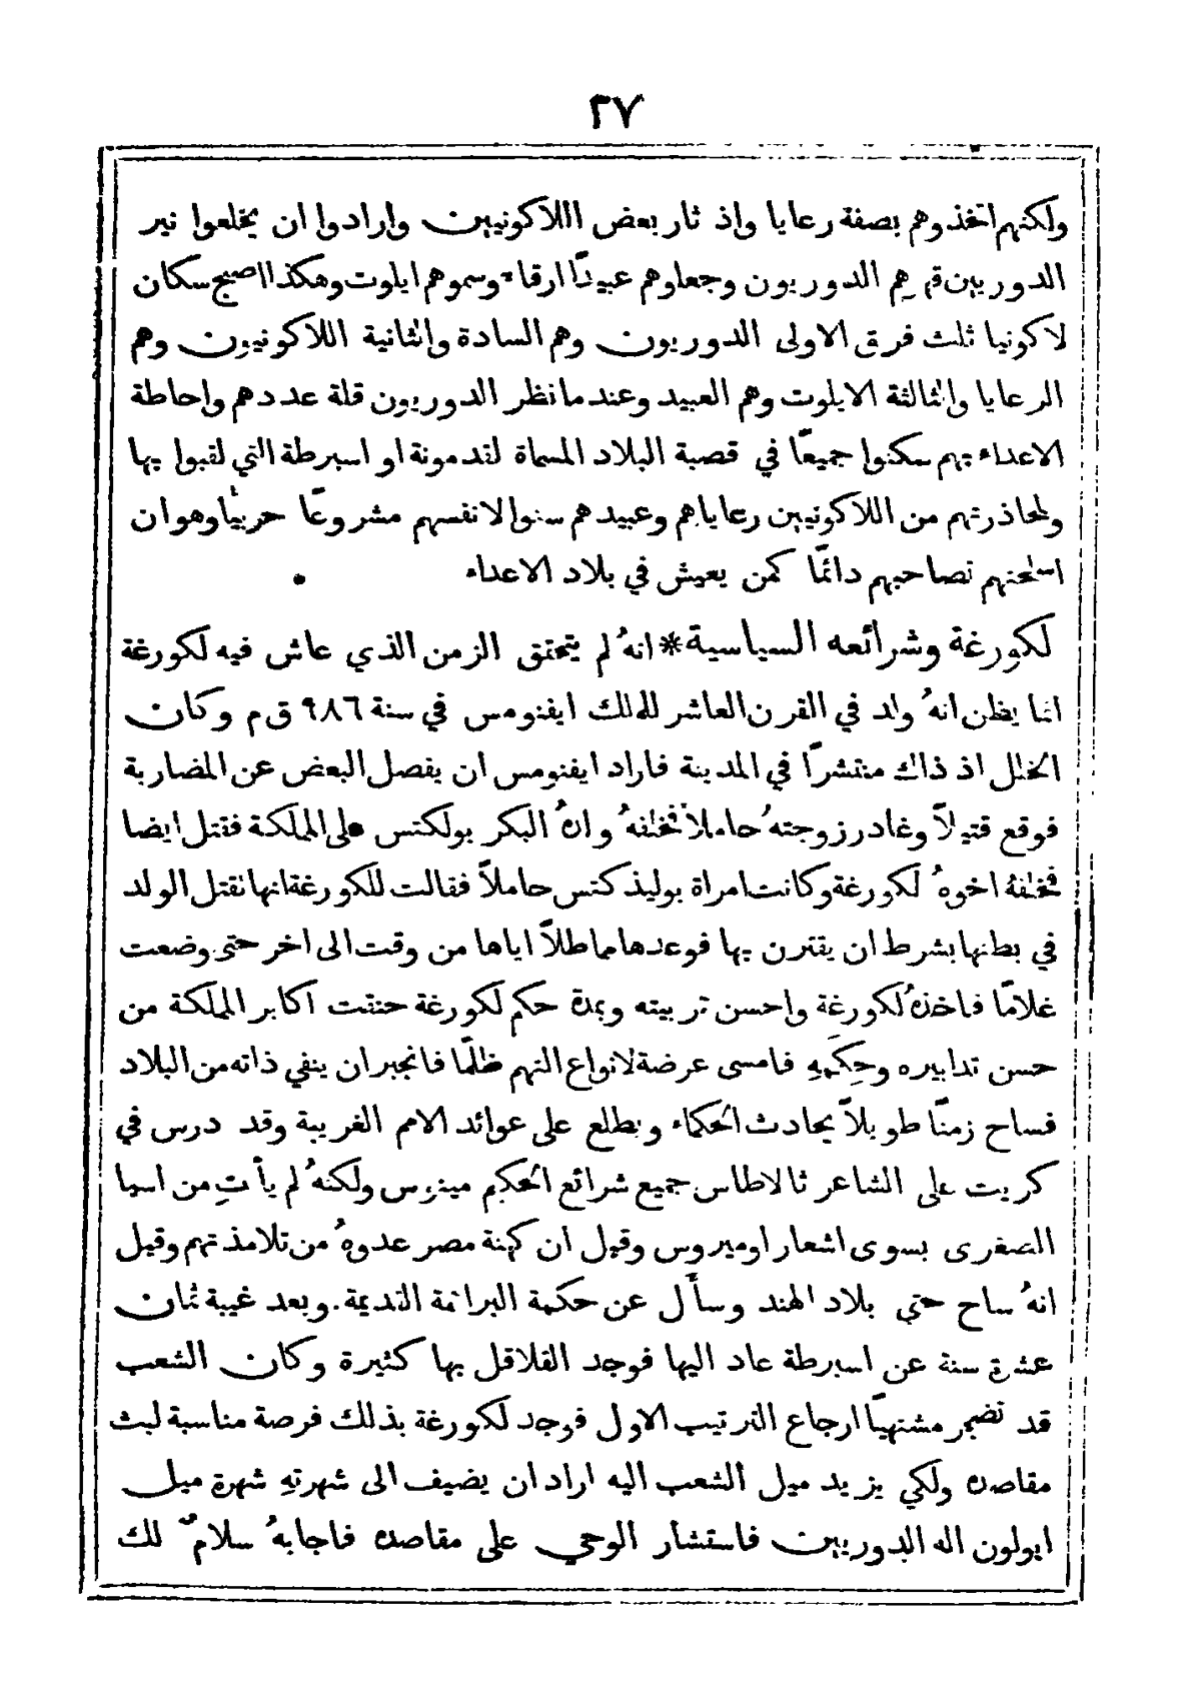 ٢٧
ولكنهم اتخذوهم بصفة رعايا واذ ثار بعض اللاكونيين وارادوا ان يخلعوا نير
الدوريين قهرهم الدوريون وجعلوهم عبيدًا ارقاء وسموهم ايلوت وهكذا اصبح سكان
لاكونيا ثلث فرق الاولى الدوريون وهم السادة والثانية اللاكونيون وهم
الرعايا والثالثة الايلوت وهم العبيد وعندما نظر الدوريون قلة عددهم واحاطة
الاعداء بهم سكنوا جميعًا في قصبة البلاد المسماة لقدمونة او اسبرطة التي لقبوا بها
ولمحاذرتهم من اللاكونيين رعاياهم وعبيدهم سنوا لانفسهم مشروعًا حربيًا وهو ان
اسلحتهم تصاحبهم دائمًا كمن يعيش في بلاد الاعداء
لكورغة وشرائعه السياسية * انهُ لم يتحقق الزمن الذي عاش فيه لكورغة
انما يظن انهُ ولد في القرن العاشر للملك ايفنومس في سنة ٩٨٦ ق م وكان
الخلل اذ ذاك منتشرًا في المدينة فاراد ايفنومس ان يفصل البعض عن المضاربة
فوقع قتيلاً وغادر زوجتهُ حاملاً فخلفهُ وانهُ البكر بولكتس على المملكة فقتل ايضا
فخلفهُ اخوهُ لكورغة وكانت امراة بوليذكتس حاملاً فقالت للكورغة انها تقتل الولد
في بطنها بشرط ان يقترن بها فوعدها مماطلاً اياها من وقت الى اخر حتى وضعت
غلامًا فاخذهُ لكورغة واحسن تربيته وبمدة حكم لكورغة حنقت اكابر المملكة من
حسن تدابيره وحِكَمهِ فامسى عرضة لانواع التهم ظلمًا فانجبر ان ينفي ذاته من البلاد
فساح زمنًا طويلاً يحادث الحكماء ويطلع على عوائد الامم الغريبة وقد درس في
كريت على الشاعر ثالاطاس جميع شرائع الحكيم مينوس ولكنهُ لم يأتِ من اسيا
الصغرى بسوى اشعار اوميروس وقيل ان كهنة مصر عدوهُ من تلامذتهم وقيل
انهُ ساح حتي بلاد الهند وسأل عن حكمة البراهمة القديمة. وبعد غيبة ثمان
عشرة سنة عن اسبرطة عاد اليها فوجد القلاقل بها كثيرة وكان الشعب
قد تضجر مشتهيًا ارجاع الترتيب الاول فوجد لكورغة بذلك فرصة مناسبة لبث
مقاصده ولكي يزيد ميل الشعب اليه اراد ان يضيف الى شهرتهِ شهرة ميل
ابولون اله الدوريين فاستشار الوحي على مقاصده فاجابهُ سلامٌ لك